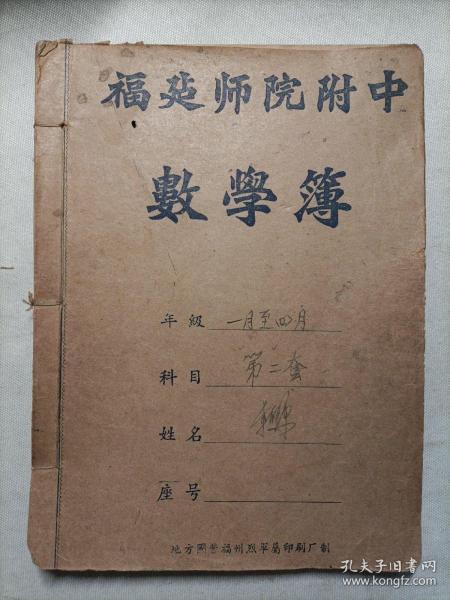 福建师院附中
數學簿
年級 一月至四月
科目 第二套
姓名
座号
地方國營福州烈軍屬印刷厂制
孔夫子旧书网
www.kongfz.com